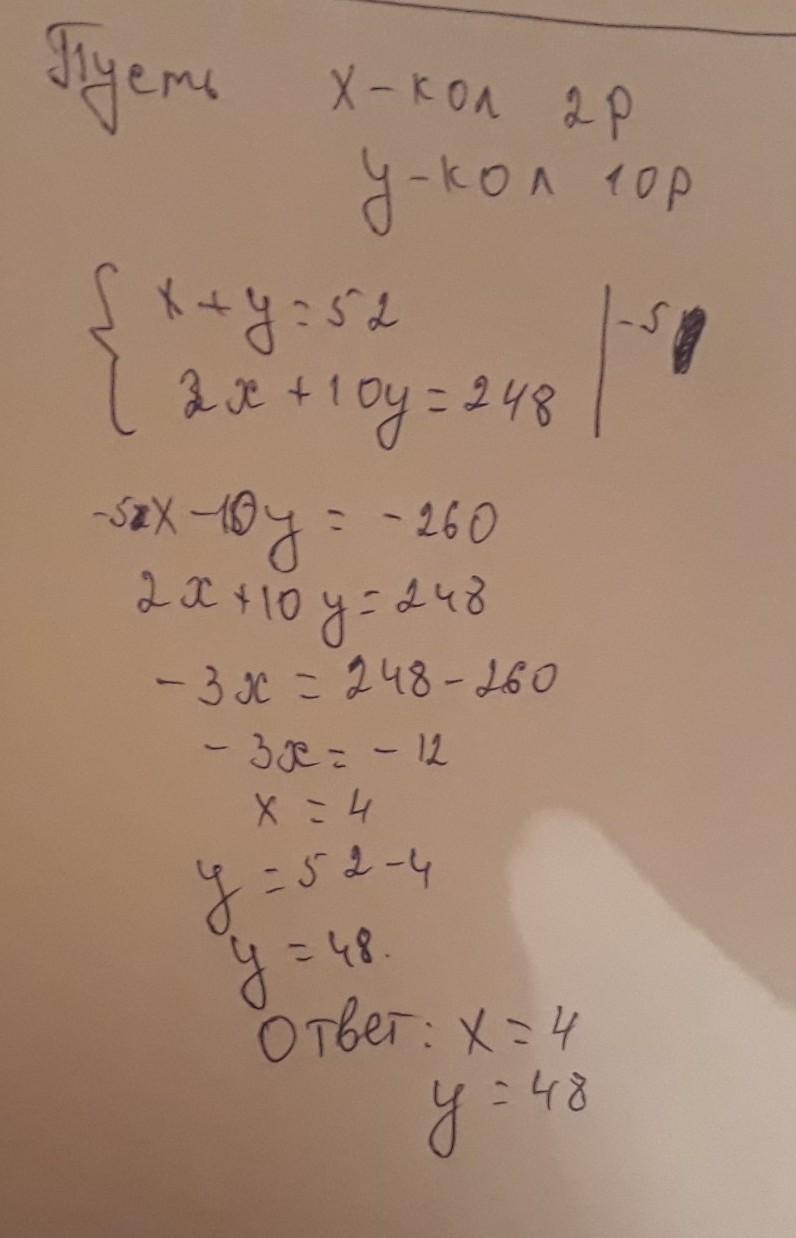 Пусть x-кол 2р
y-кол 10р
{ x + y = 52 | -5
2x + 10y = 248
-5x -10y = -260
2x + 10y = 248
-3x = 248 - 260
-3x = -12
x = 4
y = 52 - 4
y = 48.
Ответ: x = 4
y = 48